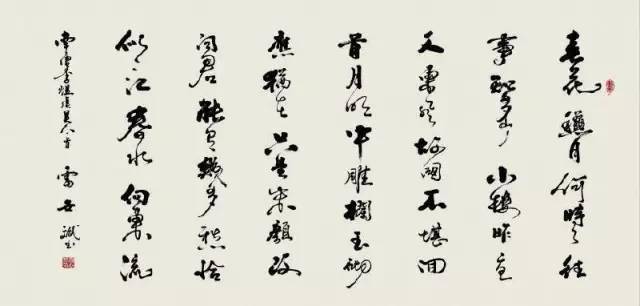 春花龝月何時了往
事知多少小樓昨夜
又東風故國不堪回
首月明中雕欄玉砌
應猶在只是朱顏改
問君能有幾多愁恰
似一江春水向東流
南唐李煜虞美人